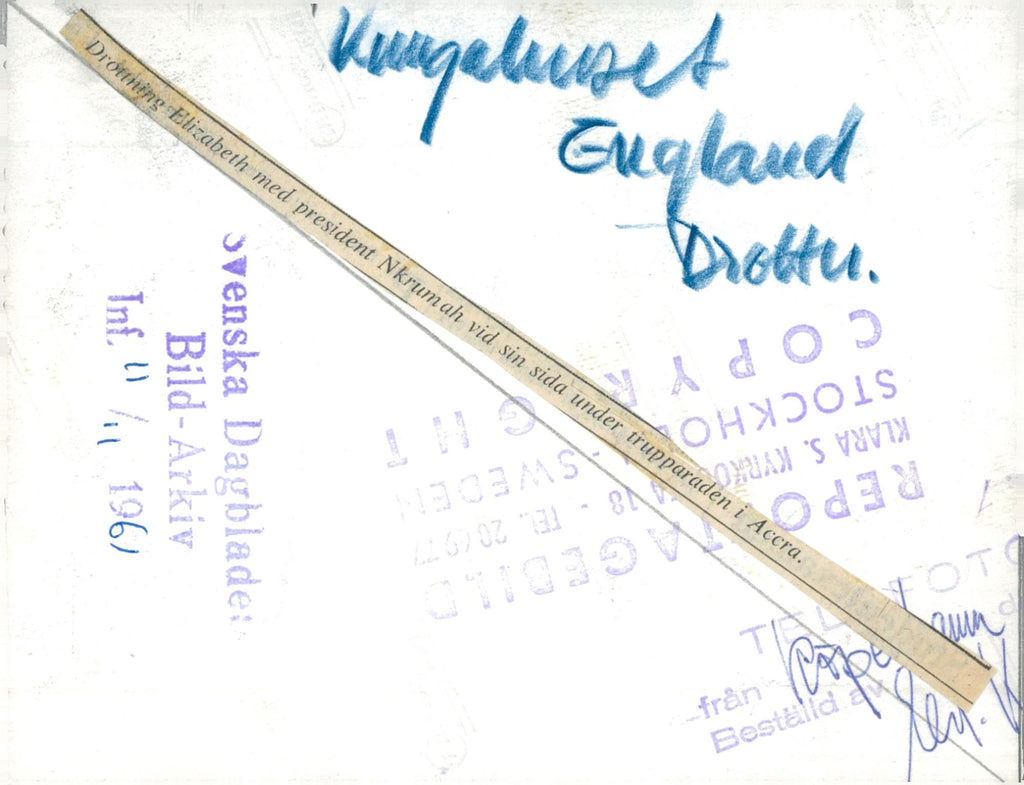 Kungahuset
England
Drottn.
Drottning Elizabeth med president Nkrumah vid sin sida under trupparaden i Accra.
Svenska Dagblade
Bild-Arkiv
Inf. 11/11 1961
COPYRIGHT
STOCKHOLM - SWEDEN
KLARA S. KYRKOG 18 - TEL.
REPORTAGEBILD
TELEFOTO
från
Beställd av